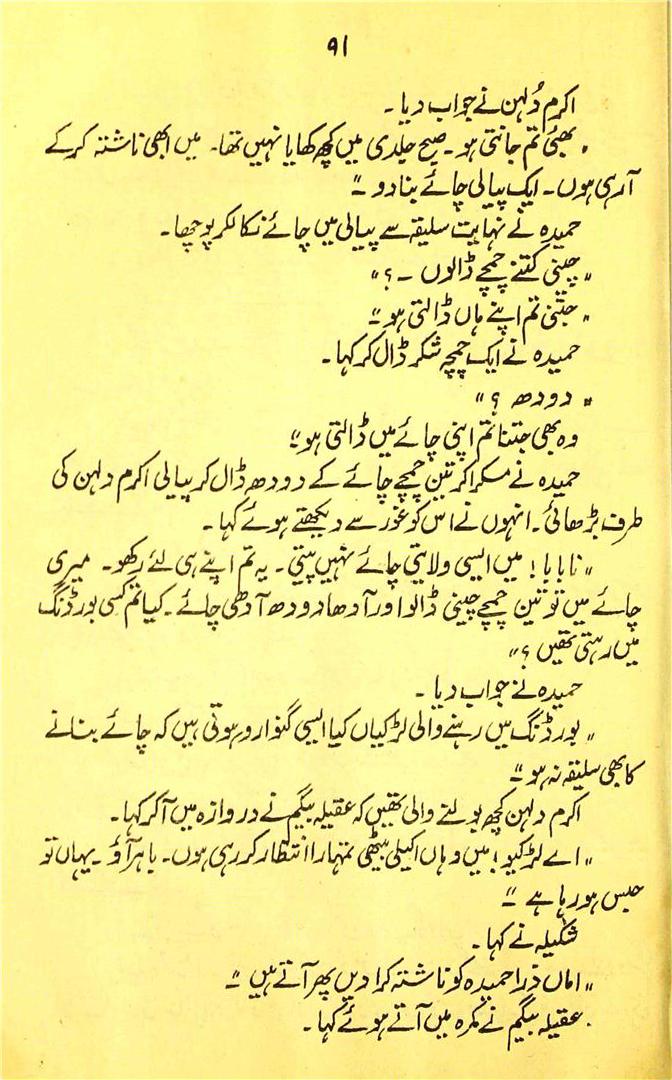 ۹۱
اکرم دُلہن نے جواب دیا۔
"بھئی تم جانتی ہو۔ صبح جلدی میں کچھ کھایا نہیں تھا۔ میں ابھی ناشتہ کر کے
آ رہی ہوں۔ ایک پیالی چائے بنا دو۔"
حمیدہ نے نہایت سلیقہ سے پیالی میں چائے نکال کر پوچھا۔
"چینی کتنے چمچے ڈالوں۔؟"
"جتنی تم اپنے ہاں ڈالتی ہو۔"
حمیدہ نے ایک چمچہ شکر ڈال کر کہا۔
"دودھ؟"
وہ بھی جتنا تم اپنی چائے میں ڈالتی ہو۔"
حمیدہ نے مسکرا کر تین چمچے چائے کے دودھ ڈال کر پیالی اکرم دلہن کی
طرف بڑھائی۔ انہوں نے اس کو غور سے دیکھتے ہوئے کہا۔
"نا بابا! میں ایسی ولایتی چائے نہیں پیتی۔ یہ تم اپنے ہی لئے رکھو۔ میری
چائے میں تو تین چمچے چینی ڈالو اور آدھا دودھ آدھی چائے۔ کیا تم کسی بورڈنگ
میں رہتی تھیں؟"
حمیدہ نے جواب دیا۔
"بورڈنگ میں رہنے والی لڑکیاں کیا ایسی گنوار و ہوتی ہیں کہ چائے بنانے
کا بھی سلیقہ نہ ہو۔"
اکرم دلہن کچھ بولنے والی تھیں کہ عقیلہ بیگم نے دروازہ میں آ کر کہا۔
"اے لڑکیو! میں وہاں اکیلی بیٹھی تمہارا انتظار کر رہی ہوں۔ باہر آؤ۔ یہاں تو
حبس ہو رہا ہے۔"
شکیلہ نے کہا۔
"اماں ذرا حمیدہ کو ناشتہ کرا دیں پھر آتے ہیں۔"
عقیلہ بیگم نے کمرہ میں آتے ہوئے کہا۔